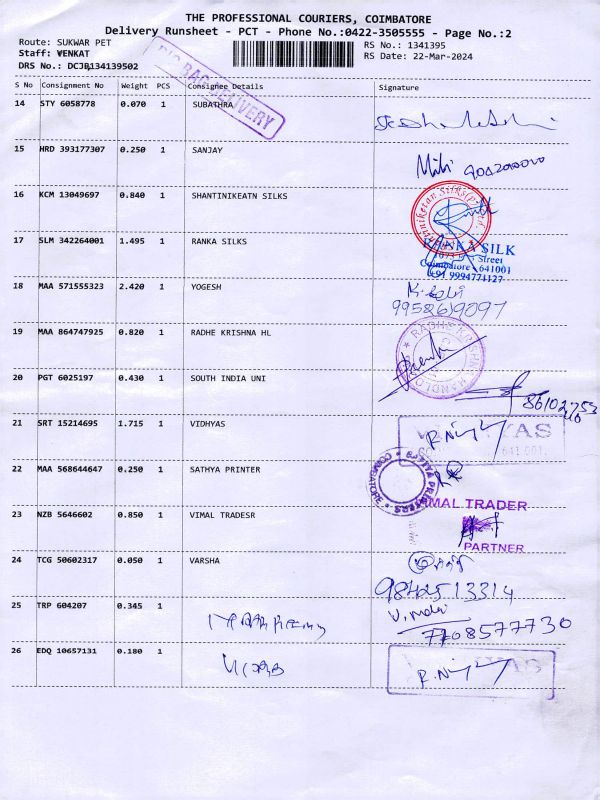 THE PROFESSIONAL COURIERS, COIMBATORE
Delivery Runsheet - PCT - Phone No.:0422-3505555 - Page No.:2
Route: SUKWAR PET
Staff: VENKAT
DRS No.: DCJB134139502
RS No.: 1341395
RS Date: 22-Mar-2024
BAG DELIVERY
S No Consignment No Weight PCS Consignee Details Signature
14 STY 6058778 0.070 1 SUBATHRA
15 HRD 393177307 0.250 1 SANJAY
16 KCM 13049697 0.840 1 SHANTINIKEATN SILKS
17 SLM 342264001 1.495 1 RANKA SILKS
RANKA SILK
Street
Coimbatore - 641001
+91 9994771127
18 MAA 571555323 2.420 1 YOGESH
9952619097
19 MAA 864747925 0.820 1 RADHE KRISHNA HL
20 PGT 6025197 0.430 1 SOUTH INDIA UNI
21 SRT 15214695 1.715 1 VIDHYAS
22 MAA 568644647 0.250 1 SATHYA PRINTER
23 NZB 5646602 0.850 1 VIMAL TRADESR
VIMAL TRADER
PARTNER
24 TCG 50602317 0.050 1 VARSHA
9842513314
25 TRP 604207 0.345 1
7708577730
26 EDQ 10657131 0.180 1